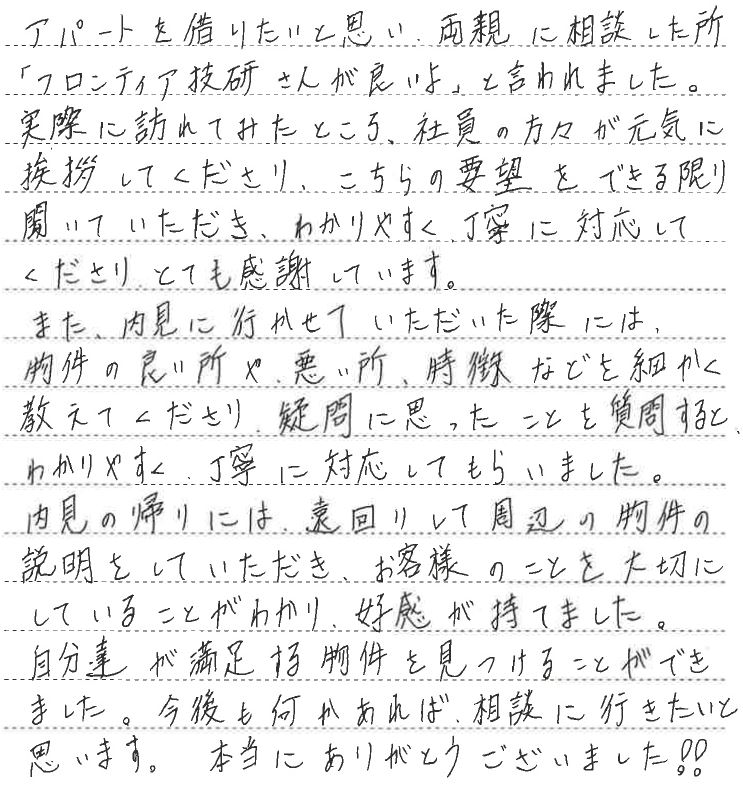 アパートを借りたいと思い、両親に相談した所
「フロンティア技研さんが良いよ」と言われました。
実際に訪れてみたところ、社員の方々が元気に
挨拶してくださり、こちらの要望をできる限り
聞いていただき、わかりやすく、丁寧に対応して
くださり、とても感謝しています。
また、内見に行かせていただいた際には、
物件の良い所や、悪い所、時徴などを細かく
教えてくださり、疑問に思ったことを質問すると、
わかりやすく、丁寧に対応してもらいました。
内見の帰りには、遠回りして周辺の物件の
説明をしていただき、お客様のことを大切に
していることがわかり、好感が持てました。
自分達が満足する物件を見つけることができ
ました。今後も何かあれば、相談に行きたいと
思います。 本当にありがとうございました!!